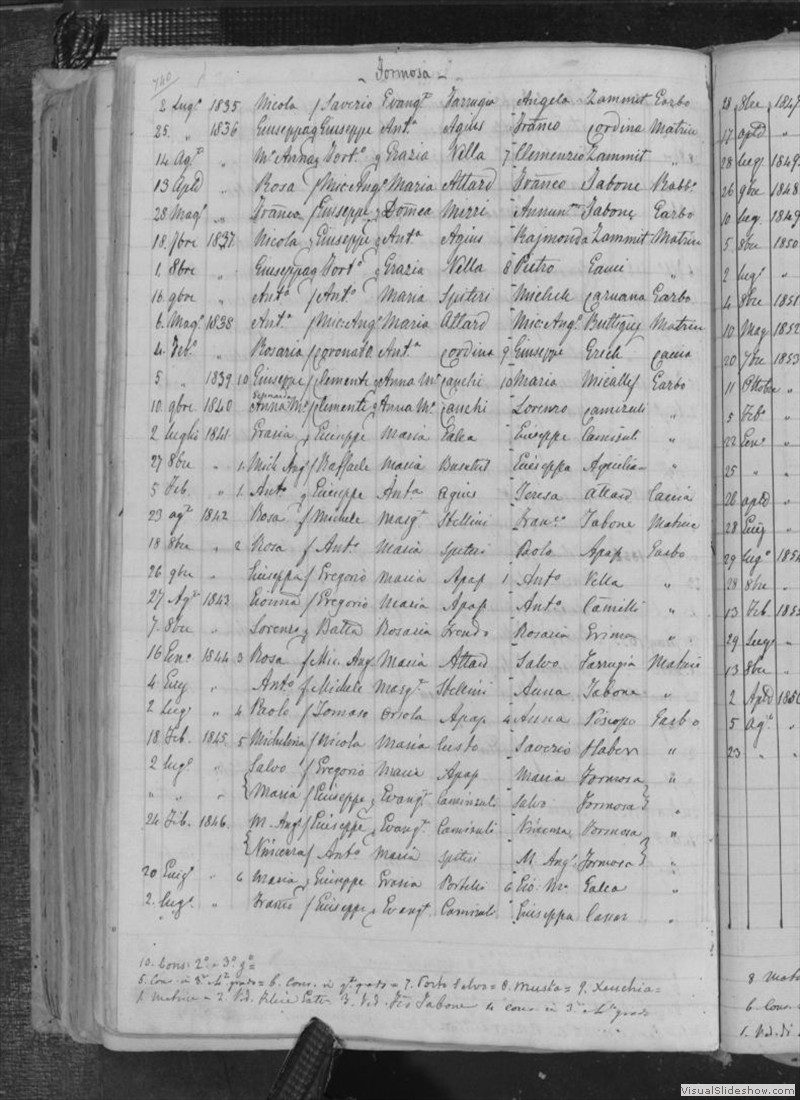 740
Formosa
2 Lug.o 1835 Nicola f Saverio Evang.ta Farrugia Angela Zammit Garbo
25 „ 1836 Giuseppa q Giuseppe Ant.a Agius Franco Cordina Matrice
14 Ag.to „ M.a Anna q Fort.o q Grazia Vella 7 Clemenzio Zammit „ „
13 Aple „ Rosa f Mic: Ang.o Maria Attard Franco Tabone Rabb.o
28 Mag.o „ Franco f Giuseppe q Domca Mizzi Annun.ta Tabone Garbo
18 7bre 1837 Nicola q Giuseppe q Ant.a Agius Rajmonda Zammit Matrice
1. 8bre „ Giuseppa q Fort.o q Grazia Vella 8 Pietro „ „
16 9bre „ Ant.a f Ant.o Maria Spiteri Michele Caruana Garbo
6. Mag.o 1838 Ant.a f Mic: Ang.o Maria Attard Mic: Ang.o Buttigieg Matrice
4. Feb.o „ Rosaria f Coronato Ant.a Cordina 9 Giuseppe Grech Caccia
5 „ 1839 10 Giuseppe f Clemente q Anna M.a Cauchi 10 Maria Micallef Garbo
10 9bre 1840 Anna M.a f Clemente q Anna M.a Cauchi Lorenzo Camizuli „
2 Luglio 1841. Grazia q Giuseppe Maria Galea Giuseppe Camisuli „
27 8bre „ 1. Mich Ang f Raffaele Maria Busuttil Giuseppa Aquilina „
5 Feb. „ 1. Ant.o q Giuseppe Anta Agius Teresa Attard Caccia
23 ag.to 1842 Rosa f Michele Marg.ta Stellini Fran.co Tabone Matrice
18 8bre „ 2 Rosa f Ant.o Maria Spiteri Paolo Apap Garbo
26 9bre „ Giuseppa f Gregorio Maria Apap 1 Ant.o Vella „
27 Ag.to 1843 f Gregorio Maria Apap Ant.o Camilli „
7 8bre „ Lorenzo q Batta Rosaria Trendo Rosaria Grima „
16 Gen.o 1844 3 Rosa f Mic. Ang Maria Attard Salvo Farrugia Matrice
4 Giug „ Ant.o f Michele Marg.ta Stellini Anna Tabone „
2 Lug.o „ 4 Paolo f Tomaso Orsola Apap 4 Anna Pisopo Garbo
18 Feb. 1845. 5 Michelina f Nicola Maria Custo Saverio Haber „
2 Lug.o Salvo f Gregorio Maria Apap Maria Formosa „
„ „ „ Maria f Giuseppe q Evang.ta Caminsuli Salvo Formosa „
24 Feb. 1846. M. Ang.o f Giuseppe q Evang.ta Camisuli Vincenza Formosa „
Vincenza f Ant.o Maria Spiteri M. Ang.o Formosa „
20 Giug.o „ 6 Maria q Giuseppe Grazia Portelli 6 Gio. M.a Galea „
2 Lug.o „ Franc f Giuseppe q Evang.ta Camisuli Giuseppa Cassar „
10. Cons. 2.o e 3.o g.o =
5. Cons. in 3.o e 4.o grado = 6. Cons. in 4.to grado = 7. Porto Salvo = 8. Musta = 9. Xeuchia =
1. Matrice = 2. Ved. 3. Ved. Tabone 4 cons. in 3.o e 4.to grado
28 8bre 1847
17 aple „
28 Lug. 1849
26 9bre 1848
10 Lug. 1849
5. 8bre 1850
2 Lug.o „
4 8bre 1851
10 Mag 1852
20 7bre 1853
11 Ottobre „
5 Feb.o „
22 Gen.o „
25 „ „
26 aple „
28 Giug „
29 Lug.o 1854
28 8bre „
13 Feb. 185
29 Lug.o „
13 8bre „
2 Aple 185
5 Ag.to „
23 „ „
8 Matri
6. Cons.
1. Ved. di
VisualSlideshow.com